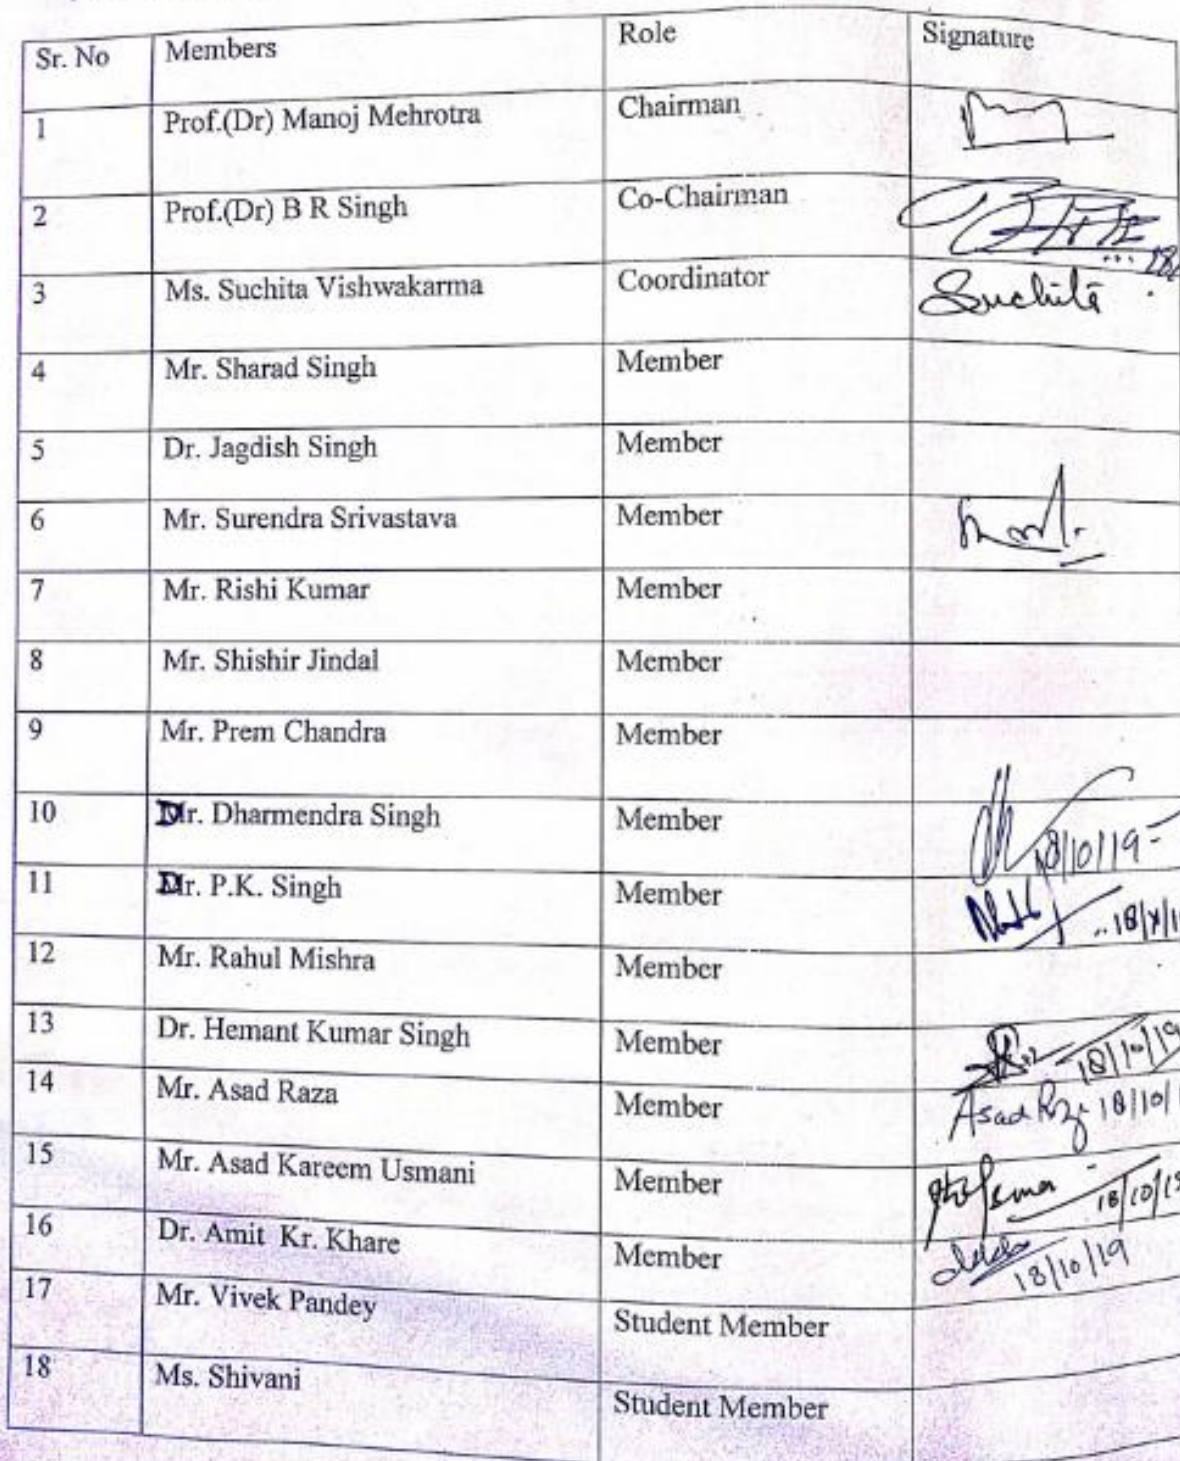 Sr. No Members Role Signature
1 Prof.(Dr) Manoj Mehrotra Chairman
2 Prof.(Dr) B R Singh Co-Chairman
3 Ms. Suchita Vishwakarma Coordinator Suchita
4 Mr. Sharad Singh Member
5 Dr. Jagdish Singh Member
6 Mr. Surendra Srivastava Member
7 Mr. Rishi Kumar Member
8 Mr. Shishir Jindal Member
9 Mr. Prem Chandra Member
10 Dr. Dharmendra Singh Member 18/10/19
11 Dr. P.K. Singh Member
12 Mr. Rahul Mishra Member
13 Dr. Hemant Kumar Singh Member 18/10/19
14 Mr. Asad Raza Member Asad Raza 18/10/
15 Mr. Asad Kareem Usmani Member 18/10/19
16 Dr. Amit Kr. Khare Member 18/10/19
17 Mr. Vivek Pandey Student Member
18 Ms. Shivani Student Member